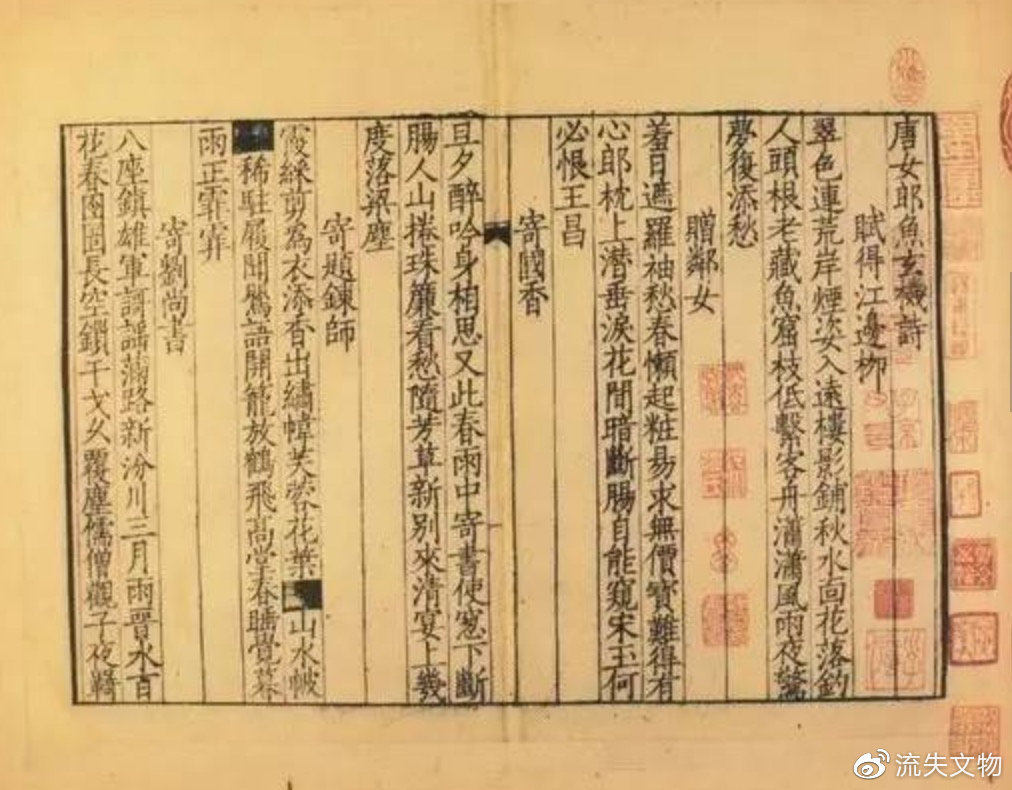 唐女郎魚玄機詩
賦得江邊柳
翠色連荒岸煙姿入遠樓影鋪秋水面花落釣
人頭根老藏魚窟枝低繫客舟瀟瀟風雨夜驚
夢復添愁
贈鄰女
羞日遮羅袖愁春懶起粧易求無價寶難得有
心郎枕上潛垂淚花間暗斷腸自能窺宋玉何
必恨王昌
寄國香
旦夕醉吟身相思又此春雨中寄書使窓下斷
腸人山捲珠簾看愁隨芳草新別來清宴上幾
度落梁塵
寄題鍊師
霞綵剪為衣添香出繡幃芙蓉花葉山水帔
稀駐履聞鶯語開籠放鶴飛高堂春睡覺暮
雨正霏霏
寄劉尚書
八座鎮雄軍謌謡滿路新汾川三月雨晉水百
花春囹圄長空鎖干戈久覆塵儒僧觀子夜羈
流失文物